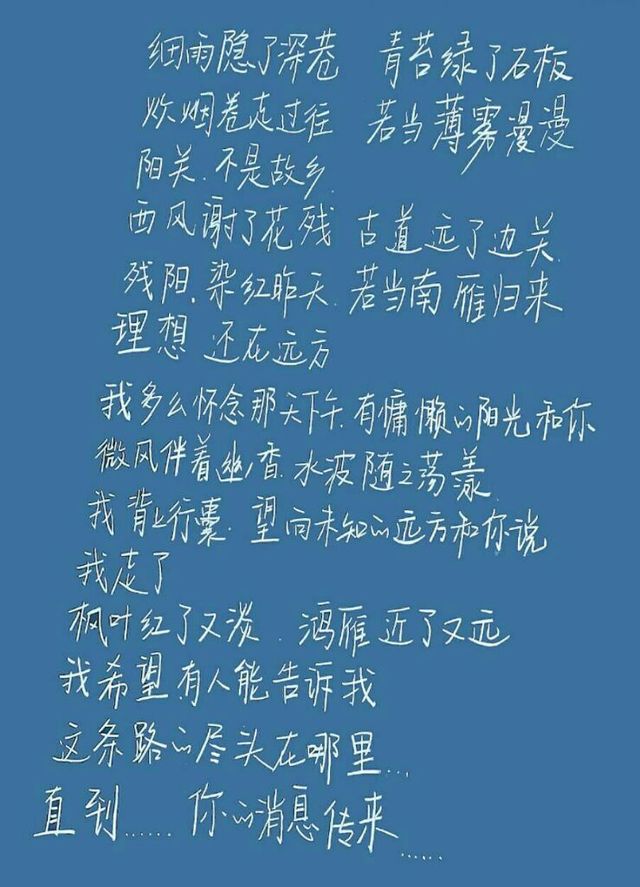 细雨隐了深巷 青苔绿了石板
炊烟卷走过往 若当薄雾漫漫
阳关.不是故乡.
西风谢了花残 古道远了边关.
残阳.染红昨天.若当南雁归来
理想 还在远方
我多么怀念那天下午.有慵懒的阳光和你
微风伴着幽香.水波随之荡漾.
我背上行囊.望向未知的远方和你说
我走了
枫叶红了又淡.鸿雁近了又远
我希望有人能告诉我
这条路的尽头在哪里...
直到......你的消息传来......